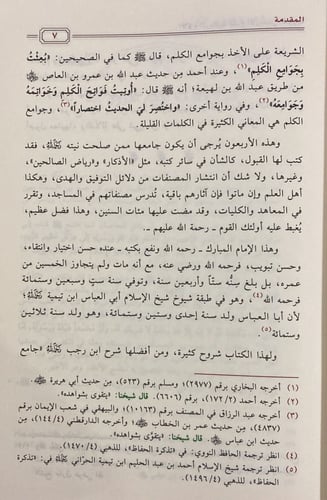 المقدمة
٧
الشريعة على الأخذ بجوامع الكلم، قال ﷺ كما في الصحيحين: «بُعِثْتُ
بِجَوَامِعِ الْكَلِمِ»(١)، وعند أحمد من حديث عبد الله بن عمرو بن العاص ﵄
من طريق عبد الله بن لهيعة) أنه قال: «أُوتِيتُ فَوَاتِحَ الْكَلِمِ وَخَوَاتِمَهُ
وَجَوَامِعَهُ»(٢)، وفي رواية أخرى: «وَاخْتُصِرَ لِيَ الحديثُ اختصاراً»(٣)، وجوامع
الكلم هي المعاني الكثيرة في الكلمات القليلة.
وهذه الأربعون يُرجى أن يكون جامعها ممن صلحت نيته ﵀، فقد
كتب لها القبول، كالشأن في سائر كتبه، مثل «الأذكار» و«رياض الصالحين»،
وغيرها، ولا شك أن انتشار المصنفات من دلائل التوفيق والهدى، وهكذا
أهل العلم وإن ماتوا فإن آثارهم باقية، تُدرس مصنفاتهم في المساجد، وتقرر
في المعاهد والكليات، وقد مضت عليها مئات السنين، وهذا فضل عظيم،
يُغبط عليه أولئك القوم ـ رحمة الله عليهم ـ.
وهذا الإمام المبارك ـ رحمه الله ونفع بكتبه ـ عنده حسن اختيار وانتقاء،
وحسن تبويب، فرحمه الله ورضي عنه، مع أنه مات ولم يتجاوز الخمسين من
عمره، بل بلغ سنُّه ستاً وأربعين سنة، وتوفي سنة ستٍ وسبعين وستمائة
فرحمه الله(٤)، وهو في طبقة شيوخ شيخ الإسلام أبي العباس ابن تيمية ﵀؛
لأن أبا العباس ولد سنة إحدى وستين وستمائة، وهو ولد سنة ثلاثين
وستمائة(٥).
ولهذا الكتاب شروح كثيرة، ومن أفضلها شرح ابن رجب ﵀ «جامع
(١) أخرجه البخاري برقم (٢٩٧٧)، ومسلم برقم (٥٢٣)، مِن حديث أبي هريرة ﵁.
(٢) أخرجه أحمد (١٧٢/٢)، برقم (٦٦٠٦). قال شيخنا: «يتقوَّى بشواهده».
(٣) أخرجه عبد الرزاق في المصنف برقم (١٠١٦٣)، والبيهقي في شعب الإيمان برقم
(٤٨٣٧)، مِن حديث عمر بن الخطاب ﵁؛ وأخرجه الدارقطني (١٤٤/٤)، مِن
حديث ابن عباس ﵄. قال شيخنا: «يتقوَّى بشواهده».
(٤) انظر ترجمة الحافظ النووي: في «تذكرة الحفاظ»، للذهبي (١٤٧٠/٤).
(٥) انظر ترجمة شيخ الإسلام أحمد بن عبد الحليم ابن تيمية الحرّاني في: «تذكرة
الحفاظ»، للذهبي (١٤٩٦/٤).